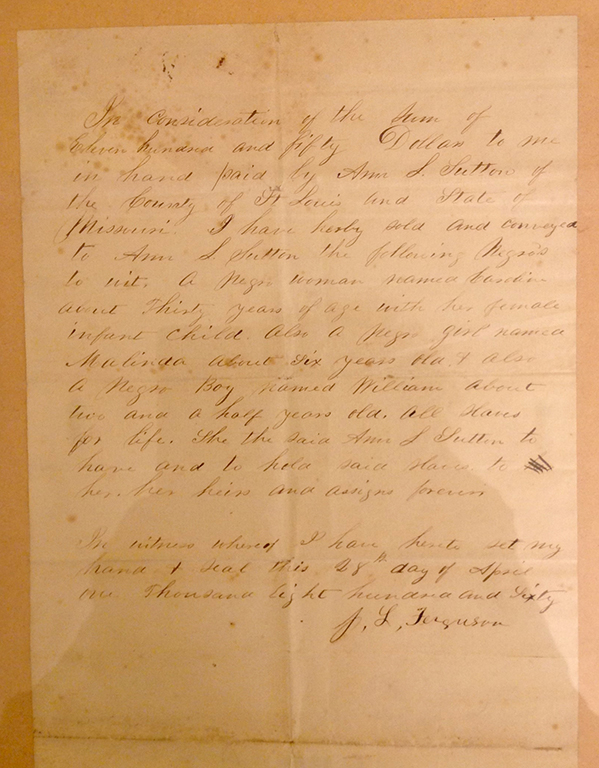 In consideration of the sum of
Eleven hundred and fifty Dollars to me
in hand paid by Ann L Sutton of
the County of St Louis and State of
Missouri. I have herby sold and conveyed
to Ann L Sutton the following Negros
to wit. A Negro woman named Caroline
about Thirty years of age with her female
infant child. Also a Negro girl named
Malinda about Six years old & also
a Negro Boy named William about
two and a half years old. all slaves
for life. She the said Ann L Sutton to
have and to hold said slaves to
her. her heirs and assigns forever
In witness whereof I have hereto set my
hand & seal this 28th day of April
one Thousand Eight hundred and Sixty
J. L. Ferguson